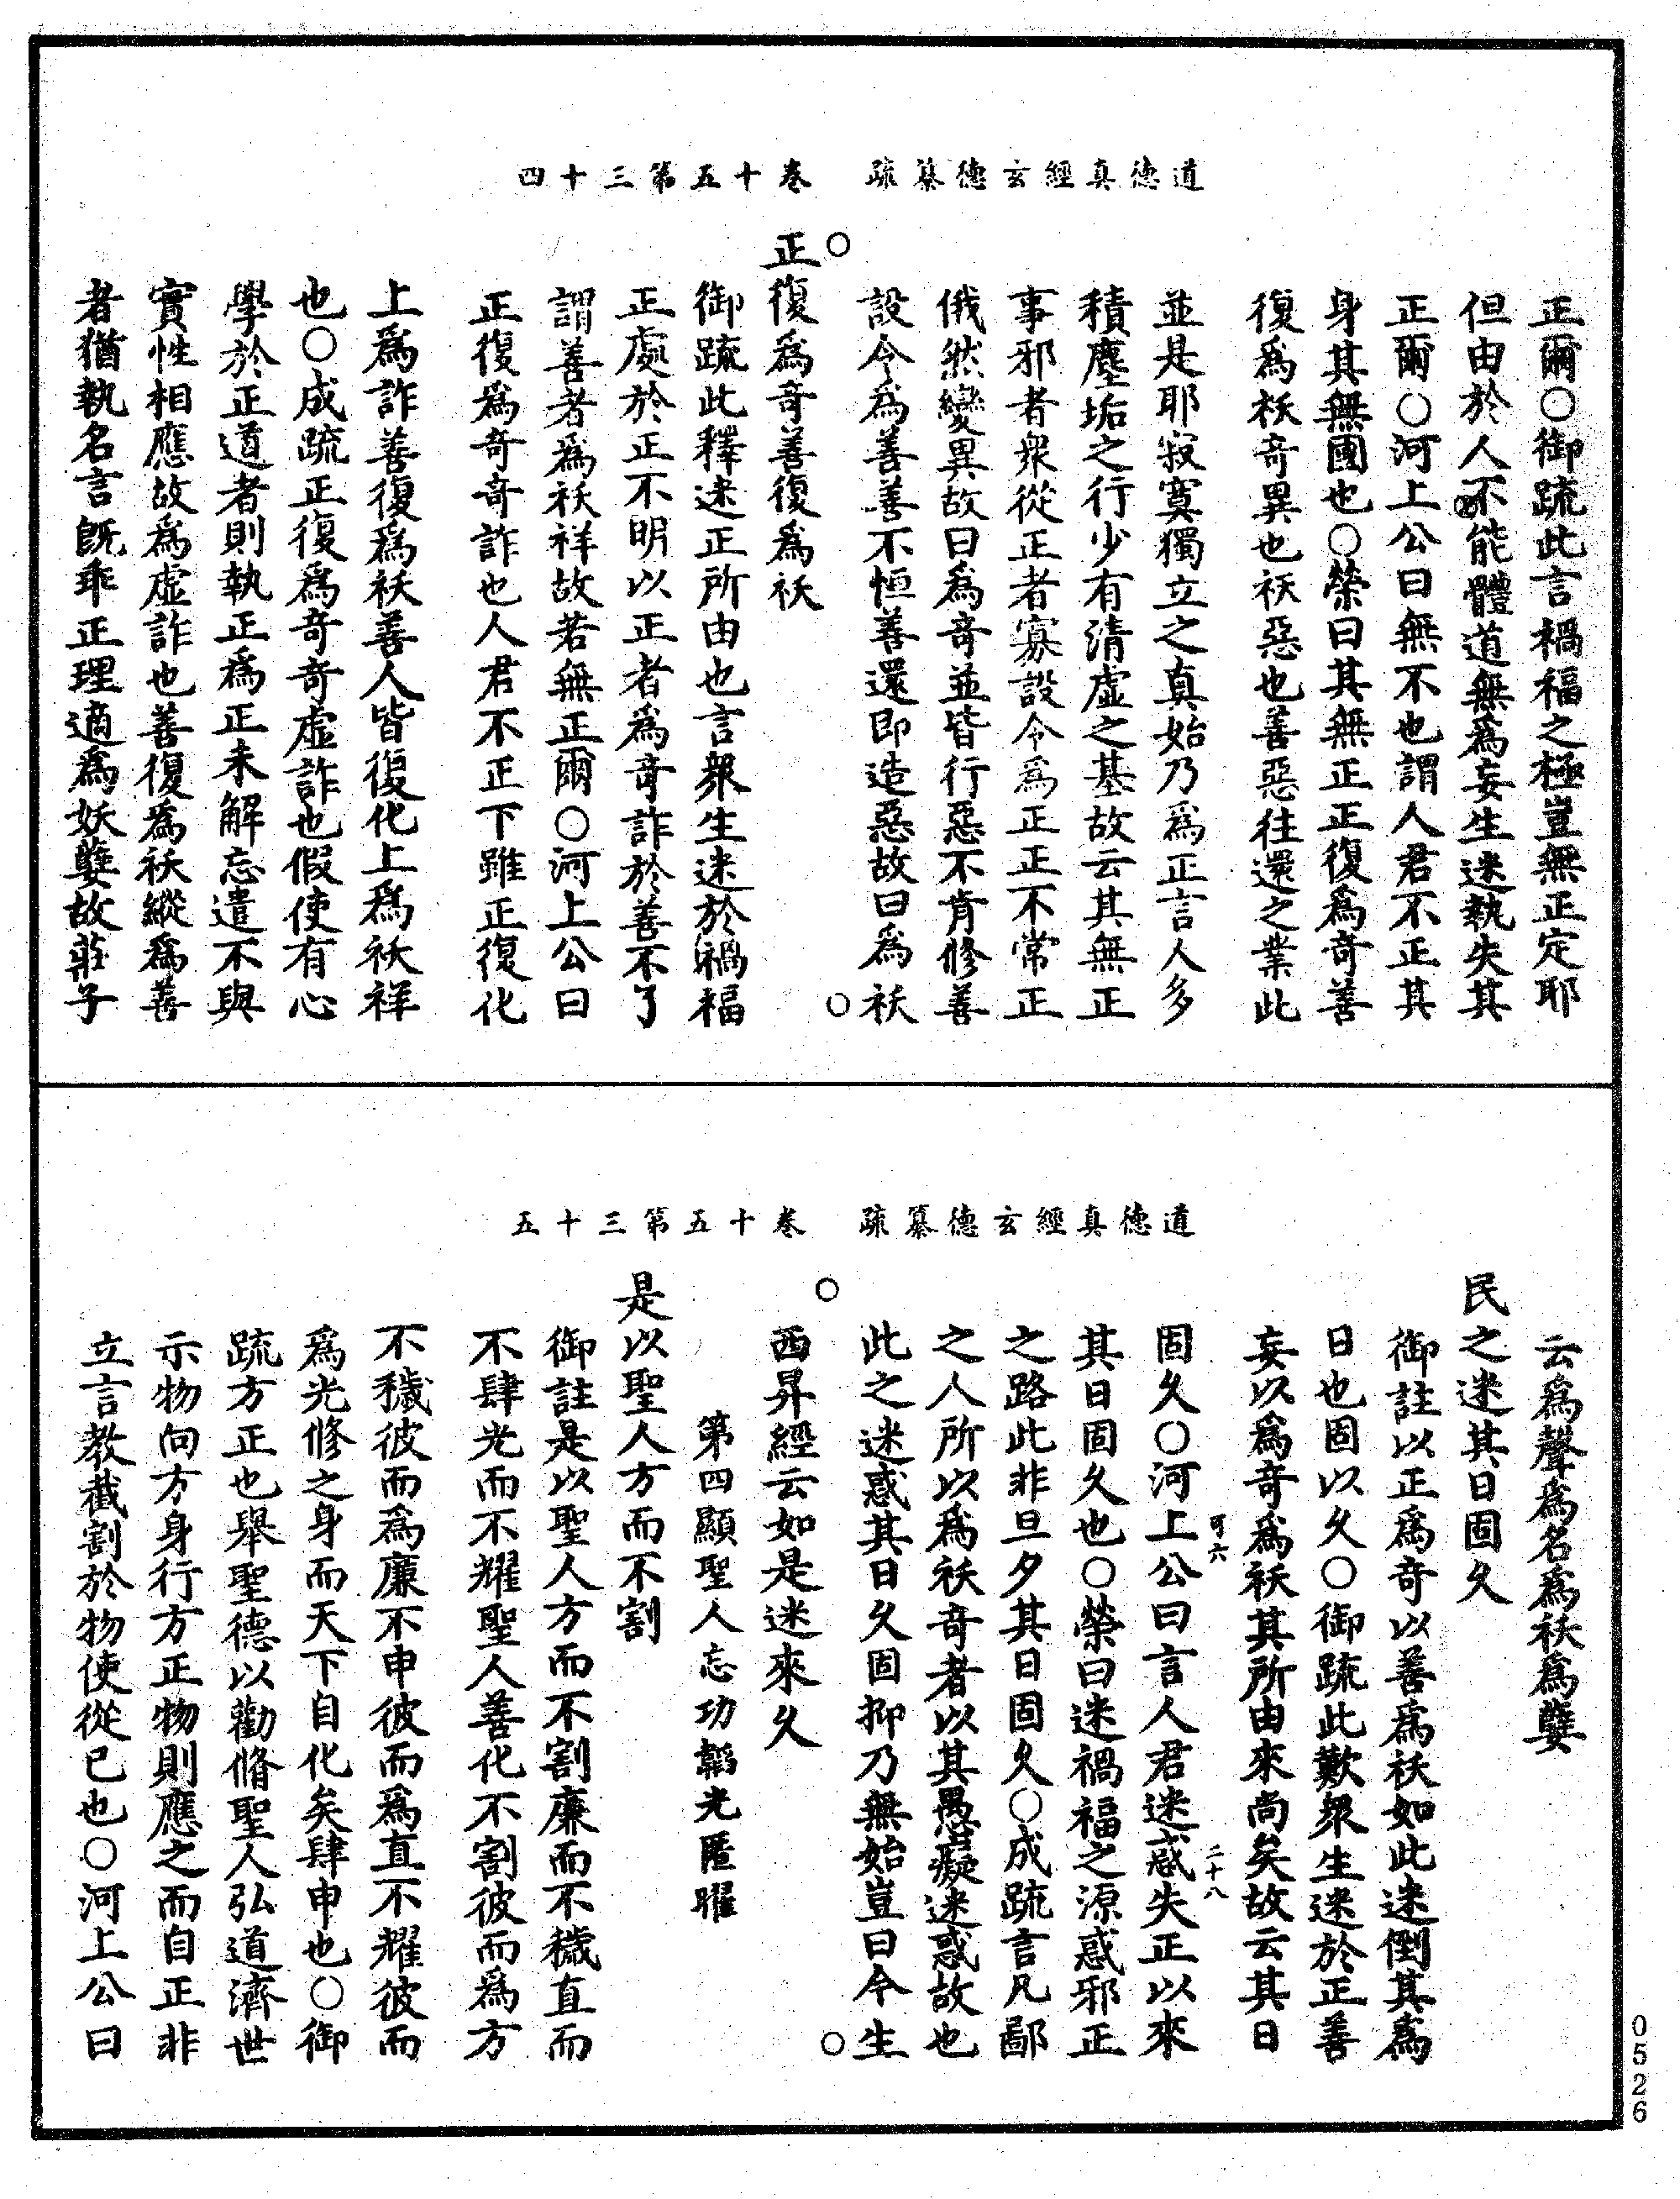 道德真經玄德纂疏　卷十五第三十四
正爾○御疏此言禍福之極豈無正定耶
但由於人不能體道無為妄生迷執失其
正爾○河上公曰無不也謂人君不正其
身其無國也○榮曰其無正正復為奇善
復為祅奇異也祅惡也善惡往還之業此
並是耶寂寞獨立之真始乃為正言人多
積塵垢之行少有清虛之基故云其無正
事邪者衆從正者寡設令為正正不常正
俄然變異故曰為奇並皆行惡不肯修善
設令為善善不恒善還即造惡故曰為祅
正復為奇善復為祅
御疏此釋迷正所由也言衆生迷於禍福
正處於正不明以正者為奇詐於善不了
謂善者為祅祥故若無正爾○河上公曰
正復為奇奇詐也人君不正下雖正復化
上為詐善復為祅善人皆復化上為祅祥
也○成疏正復為奇奇虛詐也假使有心
學於正道者則執正為正未解忘遣不與
實性相應故為虛詐也善復為祅縱為善
者猶執名言旣乖正理適為妖孽故莊子
道德真經玄德纂疏　卷十五第三十五
云為聲為名為祅為孽
民之迷其日固久
御註以正為奇以善為祅如此迷倒其為
日也固以久○御疏此歎衆生迷於正善
妄以為奇為祅其所由來尚矣故云其日
可六　二十八
固久○河上公曰言人君迷惑失正以來
其日固久也○榮曰迷禍福之源惑邪正
之路此非旦夕其日固久○成疏言凡鄙
之人所以為祅奇者以其愚癡迷惑故也
此之迷惑其日久固抑乃無始豈曰今生
西昇經云如是迷來久
第四顯聖人忘功韜光匿曜
是以聖人方而不割
御註是以聖人方而不割廉而不穢直而
不肆光而不耀聖人善化不割彼而為方
不穢彼而為廉不申彼而為直不耀彼而
為光修之身而天下自化矣肆申也○御
疏方正也舉聖德以勸脩聖人弘道濟世
示物向方身行方正物則應之而自正非
立言教截割於物使從已也○河上公曰
0526